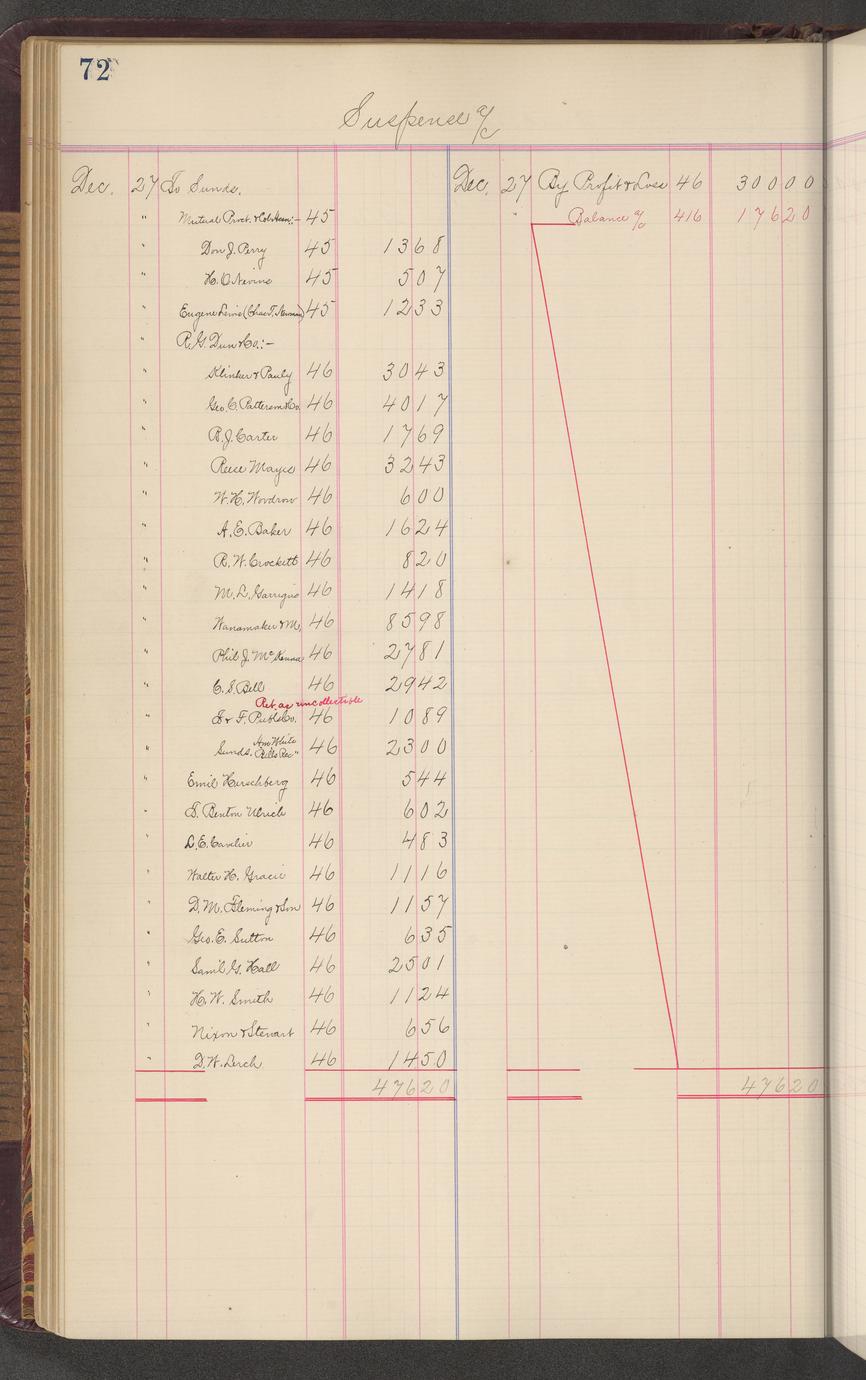 72
Suspense a/c
Dec. 27 To Sunds. Dec. 27 By Profit & Loss 46 30000
" Mutual Prot. & Col. :- 45 " Balance a/c 416 17620
" Don J. Perry 45 1368
" H. O. Nevins 45 507
" Eugene Levis (Chas. T. ) 45 1233
" R. G. Dun & Co.:-
" Klinker & Pauly 46 3043
" Geo. C. Patterson & Co. 46 4017
" B. J. Carter 46 1769
" Reese Mayes 46 3243
" W. H. Woodrow 46 600
" A. E. Baker 46 1624
" R. W. Crockett 46 820
" M. L. Garrigus 46 1418
" Wanamaker & M. 46 8598
" Phil J. McKenna 46 2781
" C. S. Bell 46 2942
Ret. as uncollectible
" & F. Publ. Co. 46 1089
" Sunds. Am White Bills Rec" 46 2300
" Emil Hirschberg 46 544
" S. Benton Ulrich 46 602
" L. E. Cavalier 46 483
" Walter H. Gracie 46 1116
" D. M. Fleming & Son 46 1157
" Geo. E. Sutton 46 635
" Saml G. Hall 46 2501
" H. W. Smith 46 1124
" Nixon & Stewart 46 656
" D. W. Lerch 46 1450
47620 47620